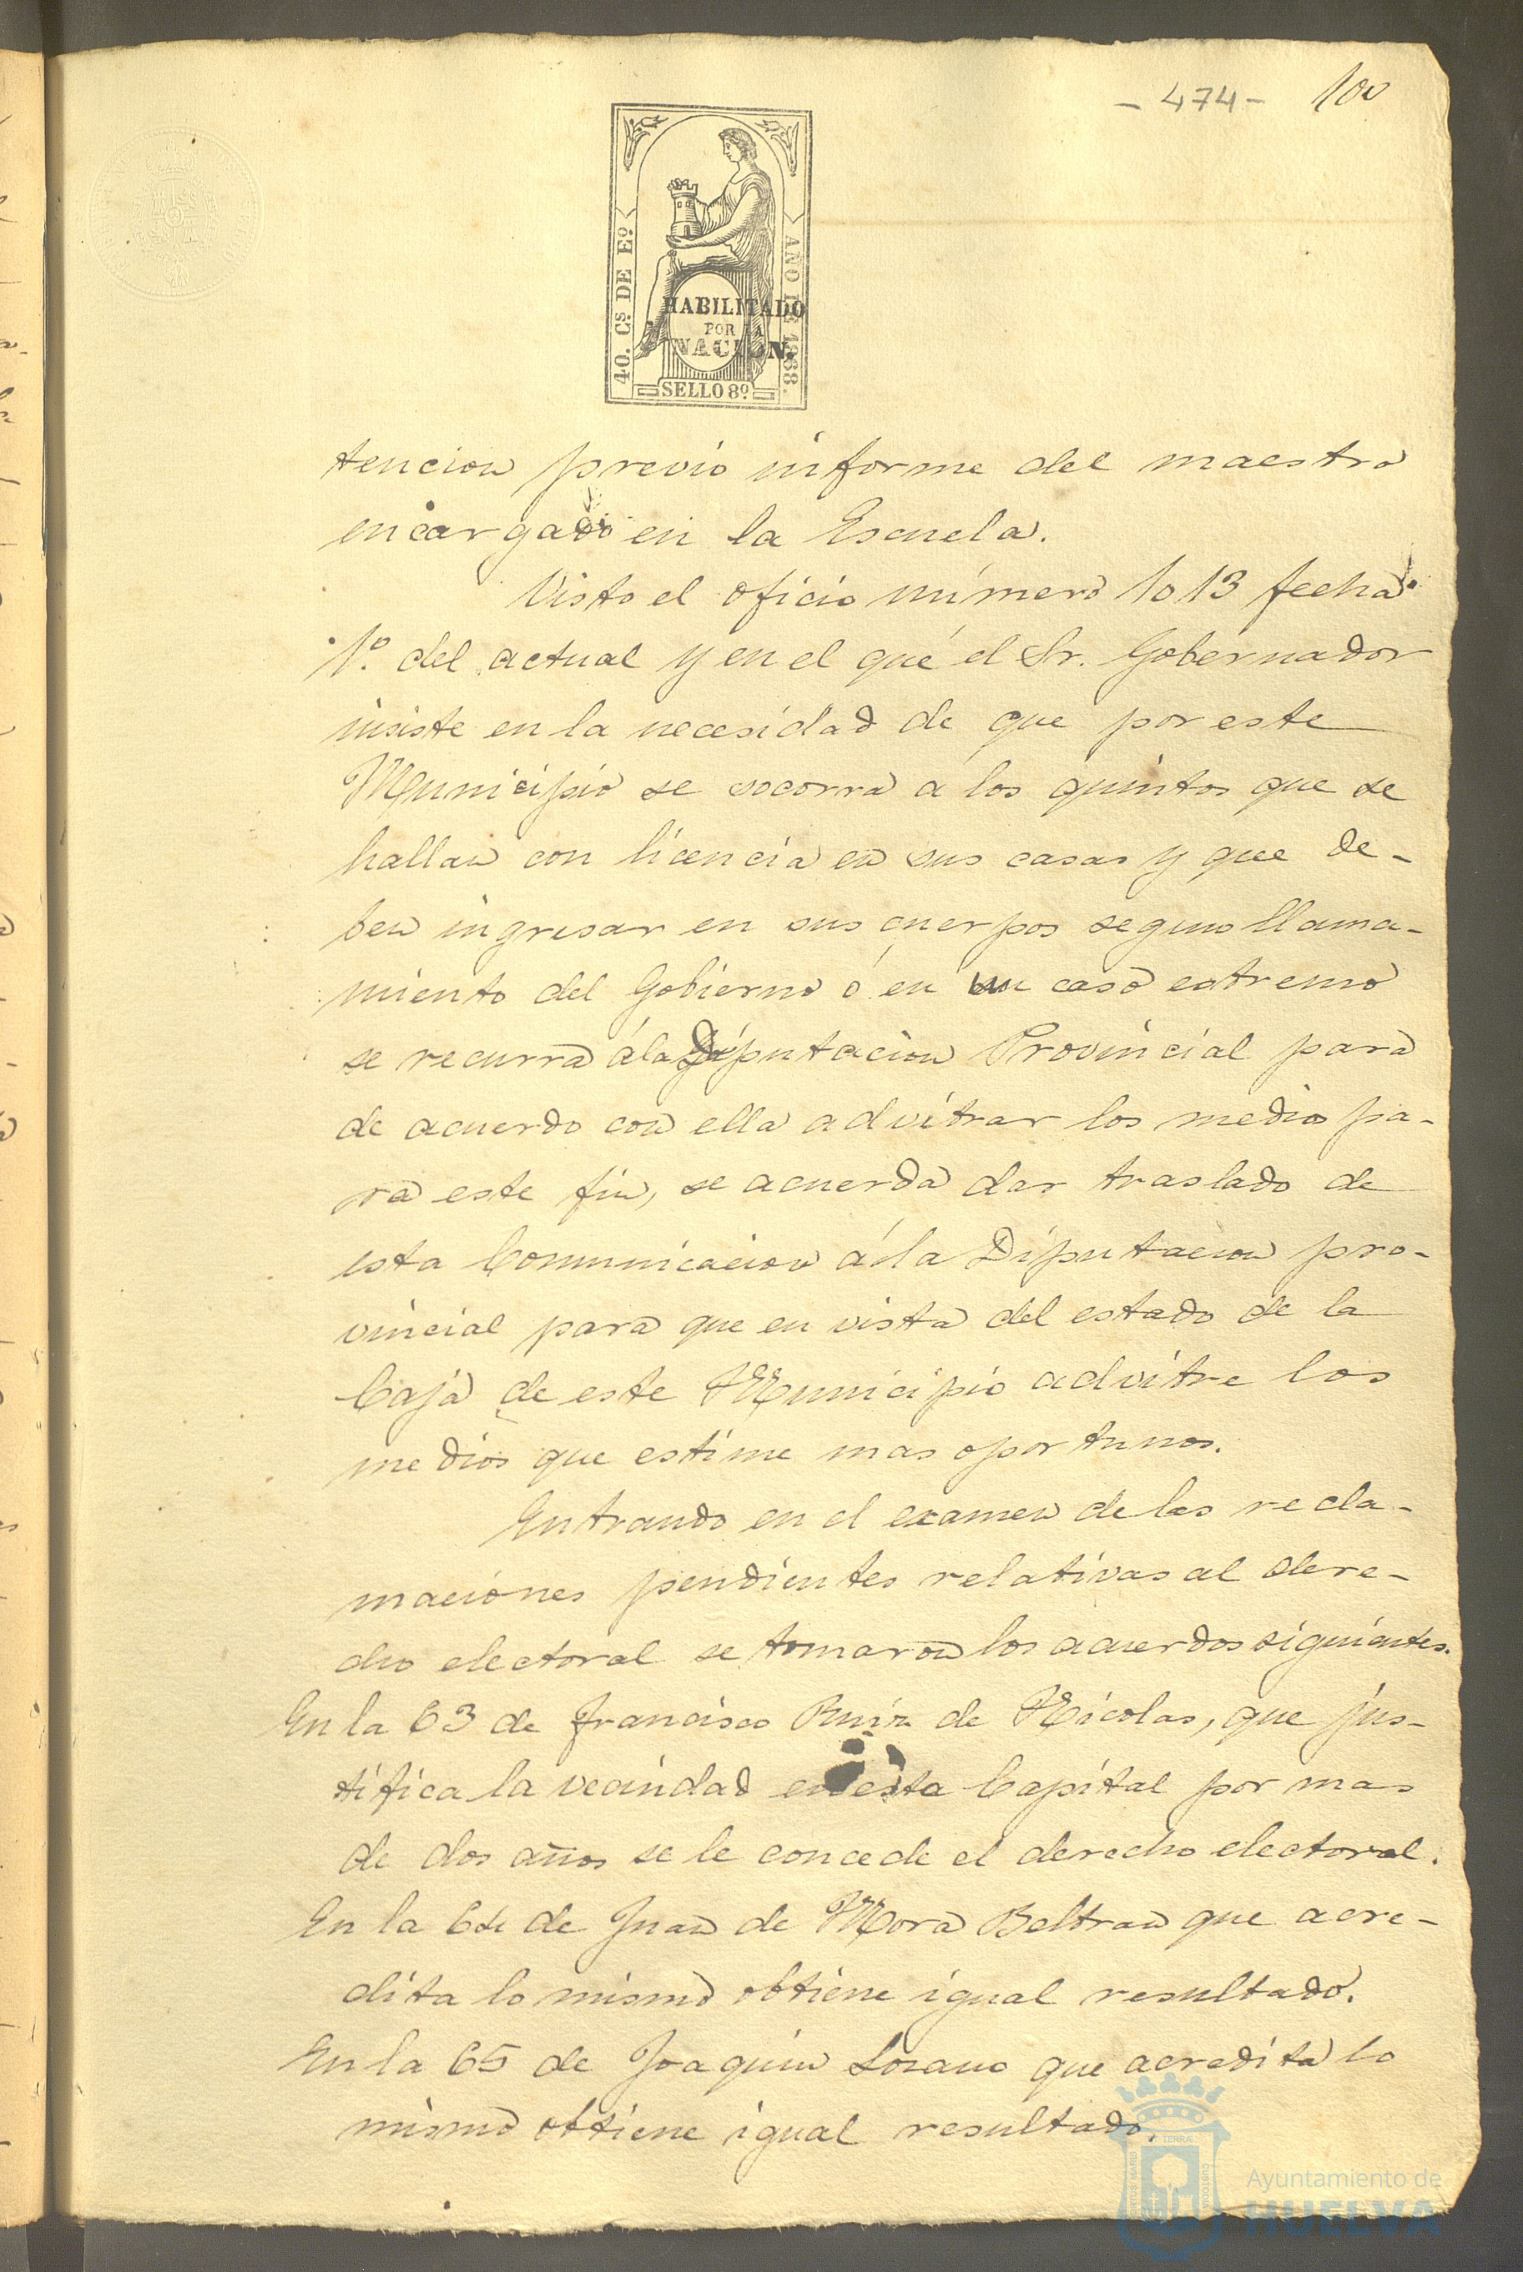 - 474 - 100
40. Cs. DE Eo.
AÑO DE 1868.
HABILITADO
POR LA
NACION.
SELLO 8º.
tencion previo informe del maestro
encargado en la Escuela.
Visto el oficio número 1013 fecha
1º. del actual y en el que el Sr. Gobernador
insiste en la necesidad de que por este
Municipio se socorra a los quintos que se
hallan con licencia en sus casas y que de-
ben ingresar en sus cuerpos segun llama-
miento del Gobierno ó en un caso estremo
se recurra á la Diputacion Provincial para
de acuerdo con ella advitrar los medios pa-
ra este fin, se acuerda dar traslado de
esta Comunicacion á la Diputacion pro-
vincial para que en vista del estado de la
Caja de este Municipio advitre los
medios que estime mas oportunos.
Entrando en el examen de las recla-
maciones pendientes relativas al dere-
cho electoral se tomaron los acuerdos siguientes.
En la 63 de Francisco Ruiz de Nicolas, que jus-
tifica la vecindad en esta Capital por mas
de dos años se le concede el derecho electoral.
En la 64 de Juan de Mora Beltran que acre-
dita lo mismo obtiene igual resultado.
En la 65 de Joaquin Lozano que acredita lo
mismo obtiene igual resultado.
Ayuntamiento de
HUELVA